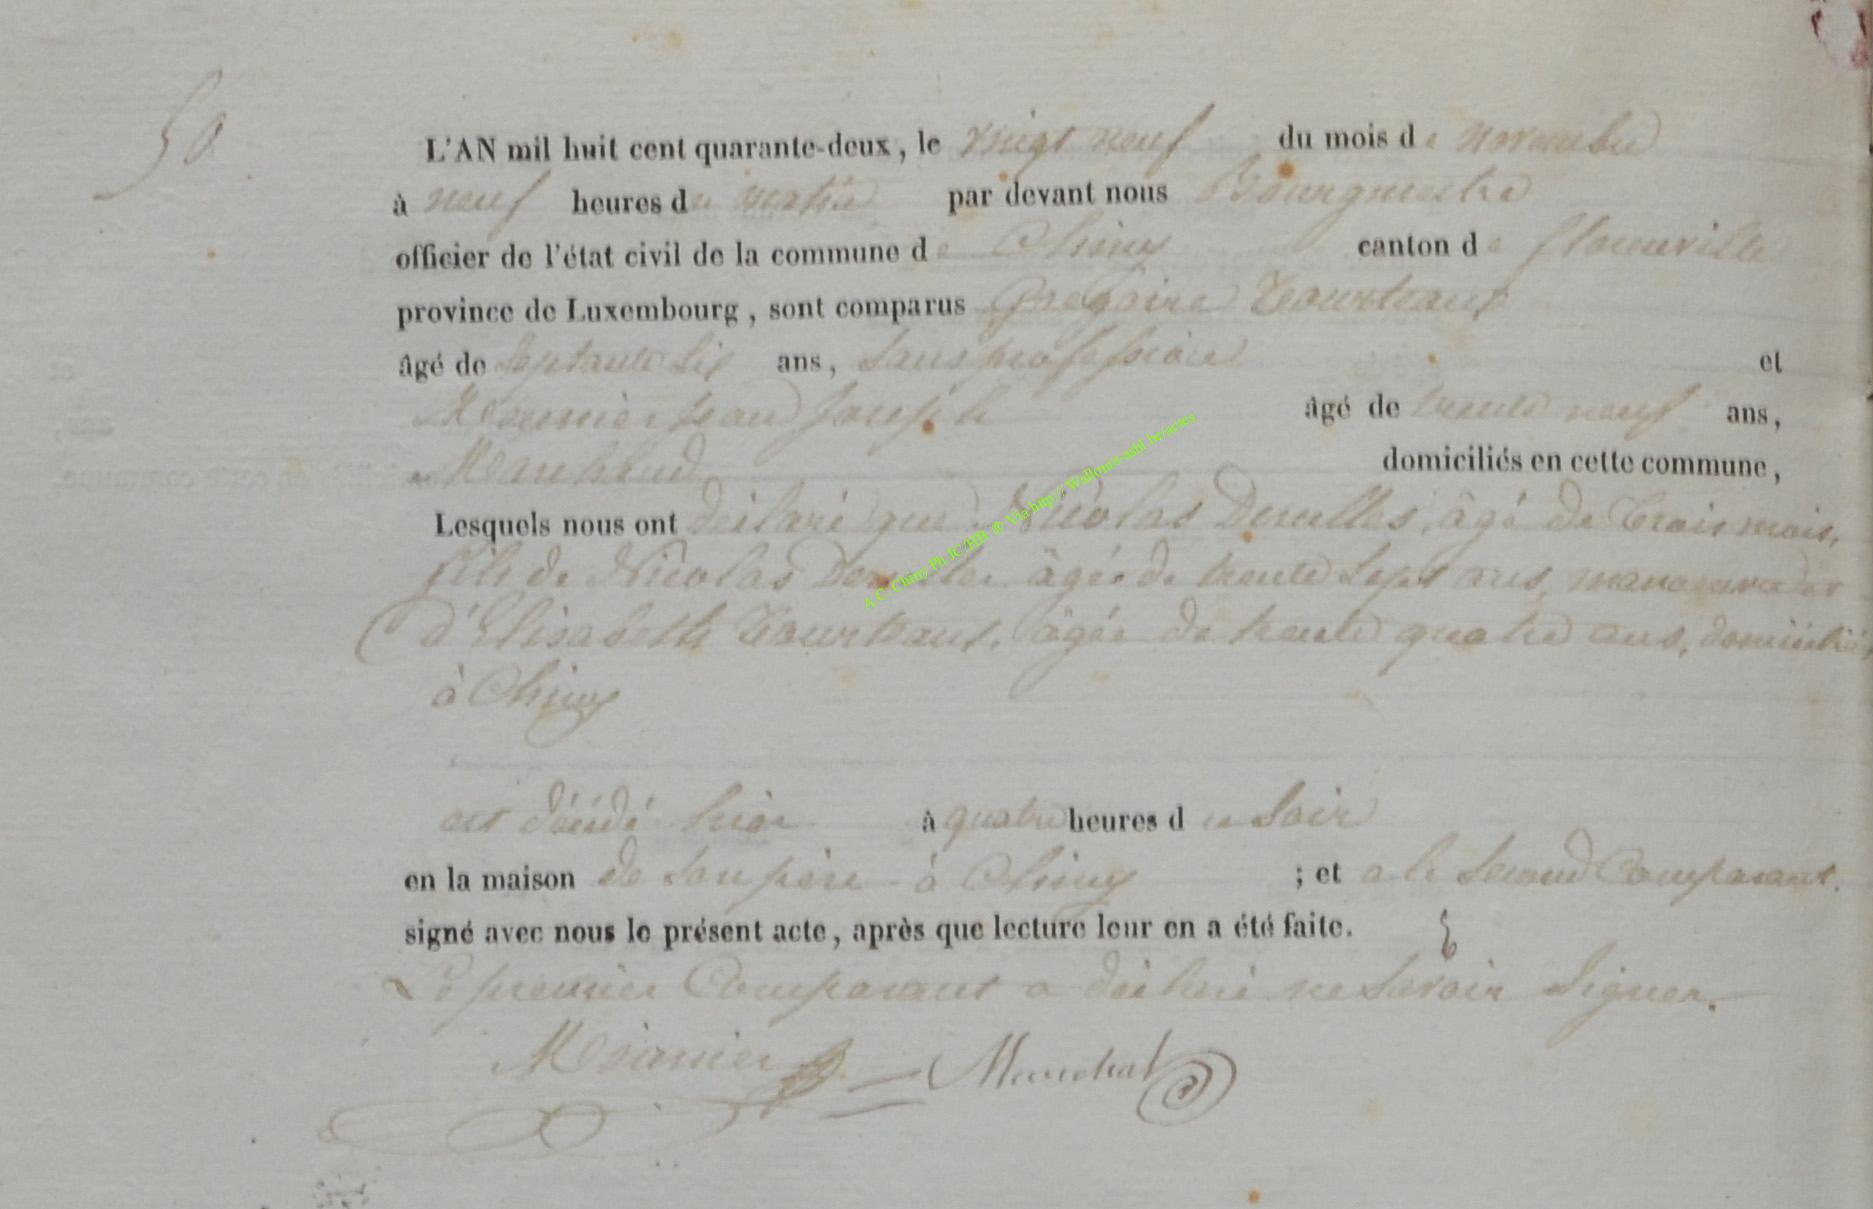 50
L'AN mil huit cent quarante-deux, le vingt neuf du mois de novembre
à neuf heures du matin par devant nous Bourgmestre
officier de l'état civil de la commune de Chiny canton de florenville
province de Luxembourg, sont comparus Gregoire Tourteaux
âgé de septante six ans, sans profession et
Meunier Jean Joseph âgé de trente neuf ans,
Marchand domiciliés en cette commune,
Lesquels nous ont déclaré que Nicolas âgé de trois mois,
fils de Nicolas âgé de trente sept ans, manoeuvre et
d'Elisabeth Tourteaux, âgée de trente quatre ans, domiciliés
à Chiny
est décédé hier à quatre heures du soir
en la maison de son père à Chiny ; et a le second Comparant
signé avec nous le présent acte, après que lecture leur en a été faite.
Le premier Comparant a déclaré ne savoir signer.
Marechal